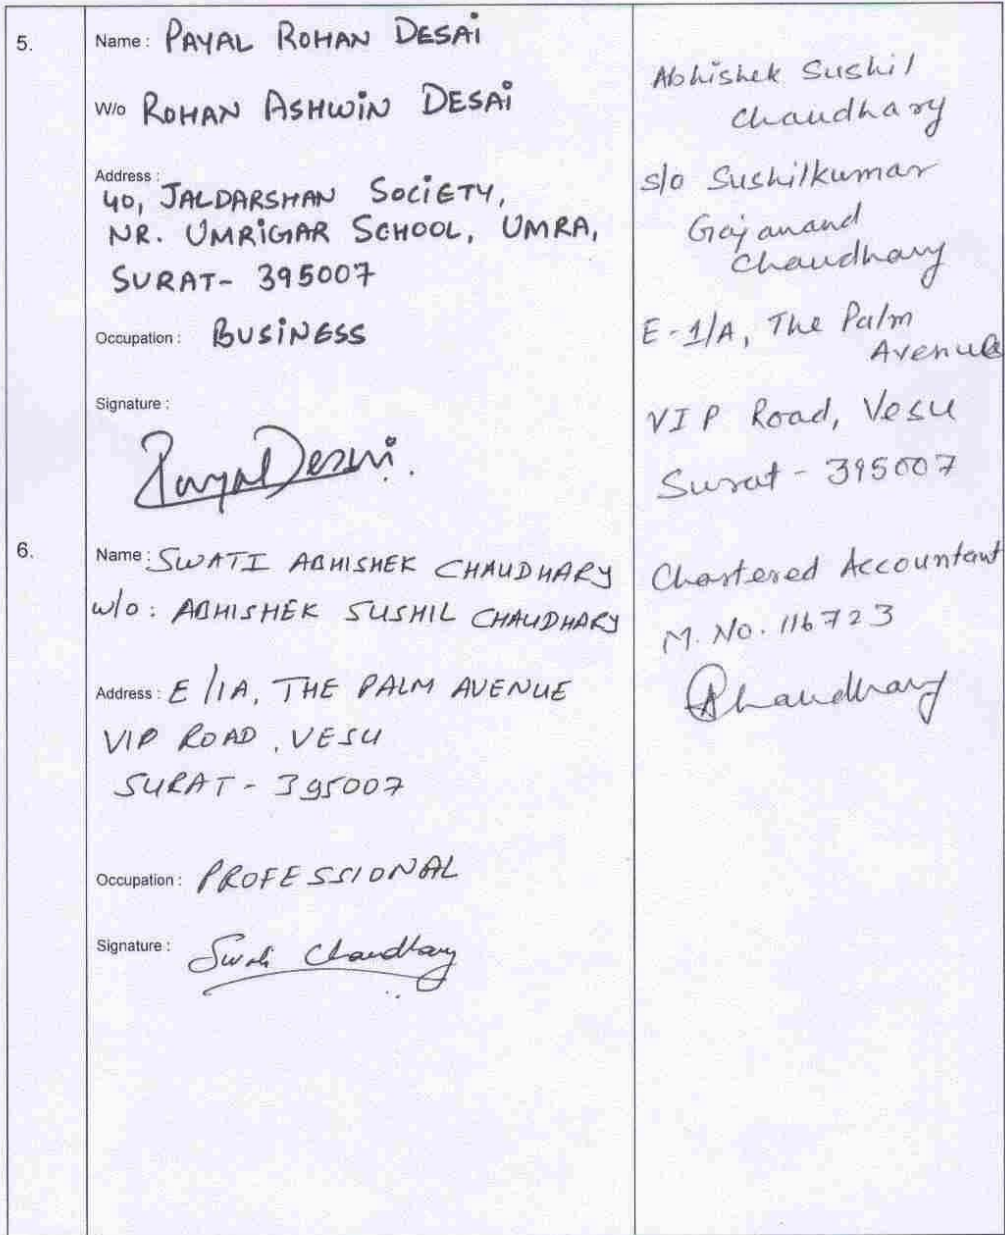 5.
Name: PAYAL ROHAN DESAI
W/o ROHAN ASHWIN DESAI
Address:
40, JALDARSHAN SOCIETY,
NR. UMRIGAR SCHOOL, UMRA,
SURAT- 395007
Occupation: BUSINESS
Signature:
Payal Desai.
6.
Name: SWATI ABHISHEK CHAUDHARY
w/o: ABHISHEK SUSHIL CHAUDHARY
Address: E/1A, THE PALM AVENUE
VIP ROAD, VESU
SURAT- 395007
Occupation: PROFESSIONAL
Signature: Swati Chaudhary
Abhishek Sushil
Chaudhary
s/o Sushilkumar
Gajanand
Chaudhary
E-1/A, The Palm
Avenue
VIP Road, Vesu
Surat - 395007
Chartered Accountant
M. No. 116723
AChaudhary